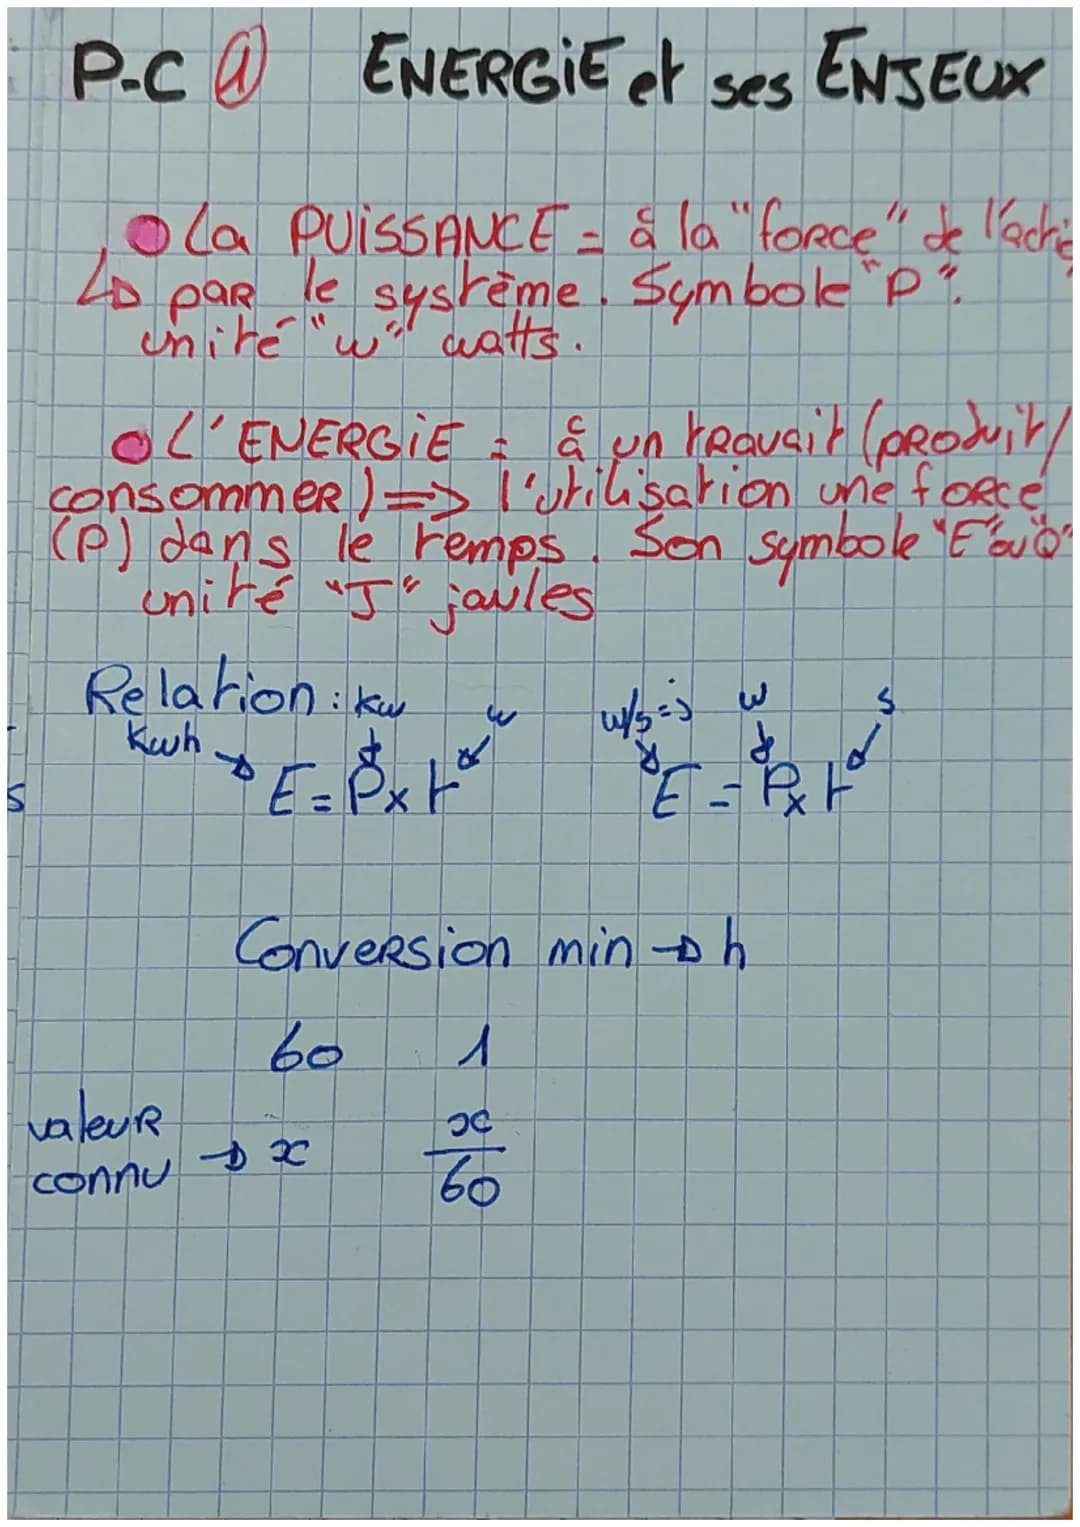 P-C 1 ENERGiE et ses ENJEUX
La PUiSSANCE = à la "force" de l'acti
par le système. Symbole "P".
unité "w" watts.
L'ENERGiE = à un travait (produit/
consommer) => l'utilisation une force
(P) dans le temps. Son symbole "E" ou Q"
unité "J" joules
Relation : kw w w/s=j w s
kwh
E = P x t E = P x t
s
Conversion min → h
60 1
valeur
connu → x x/60